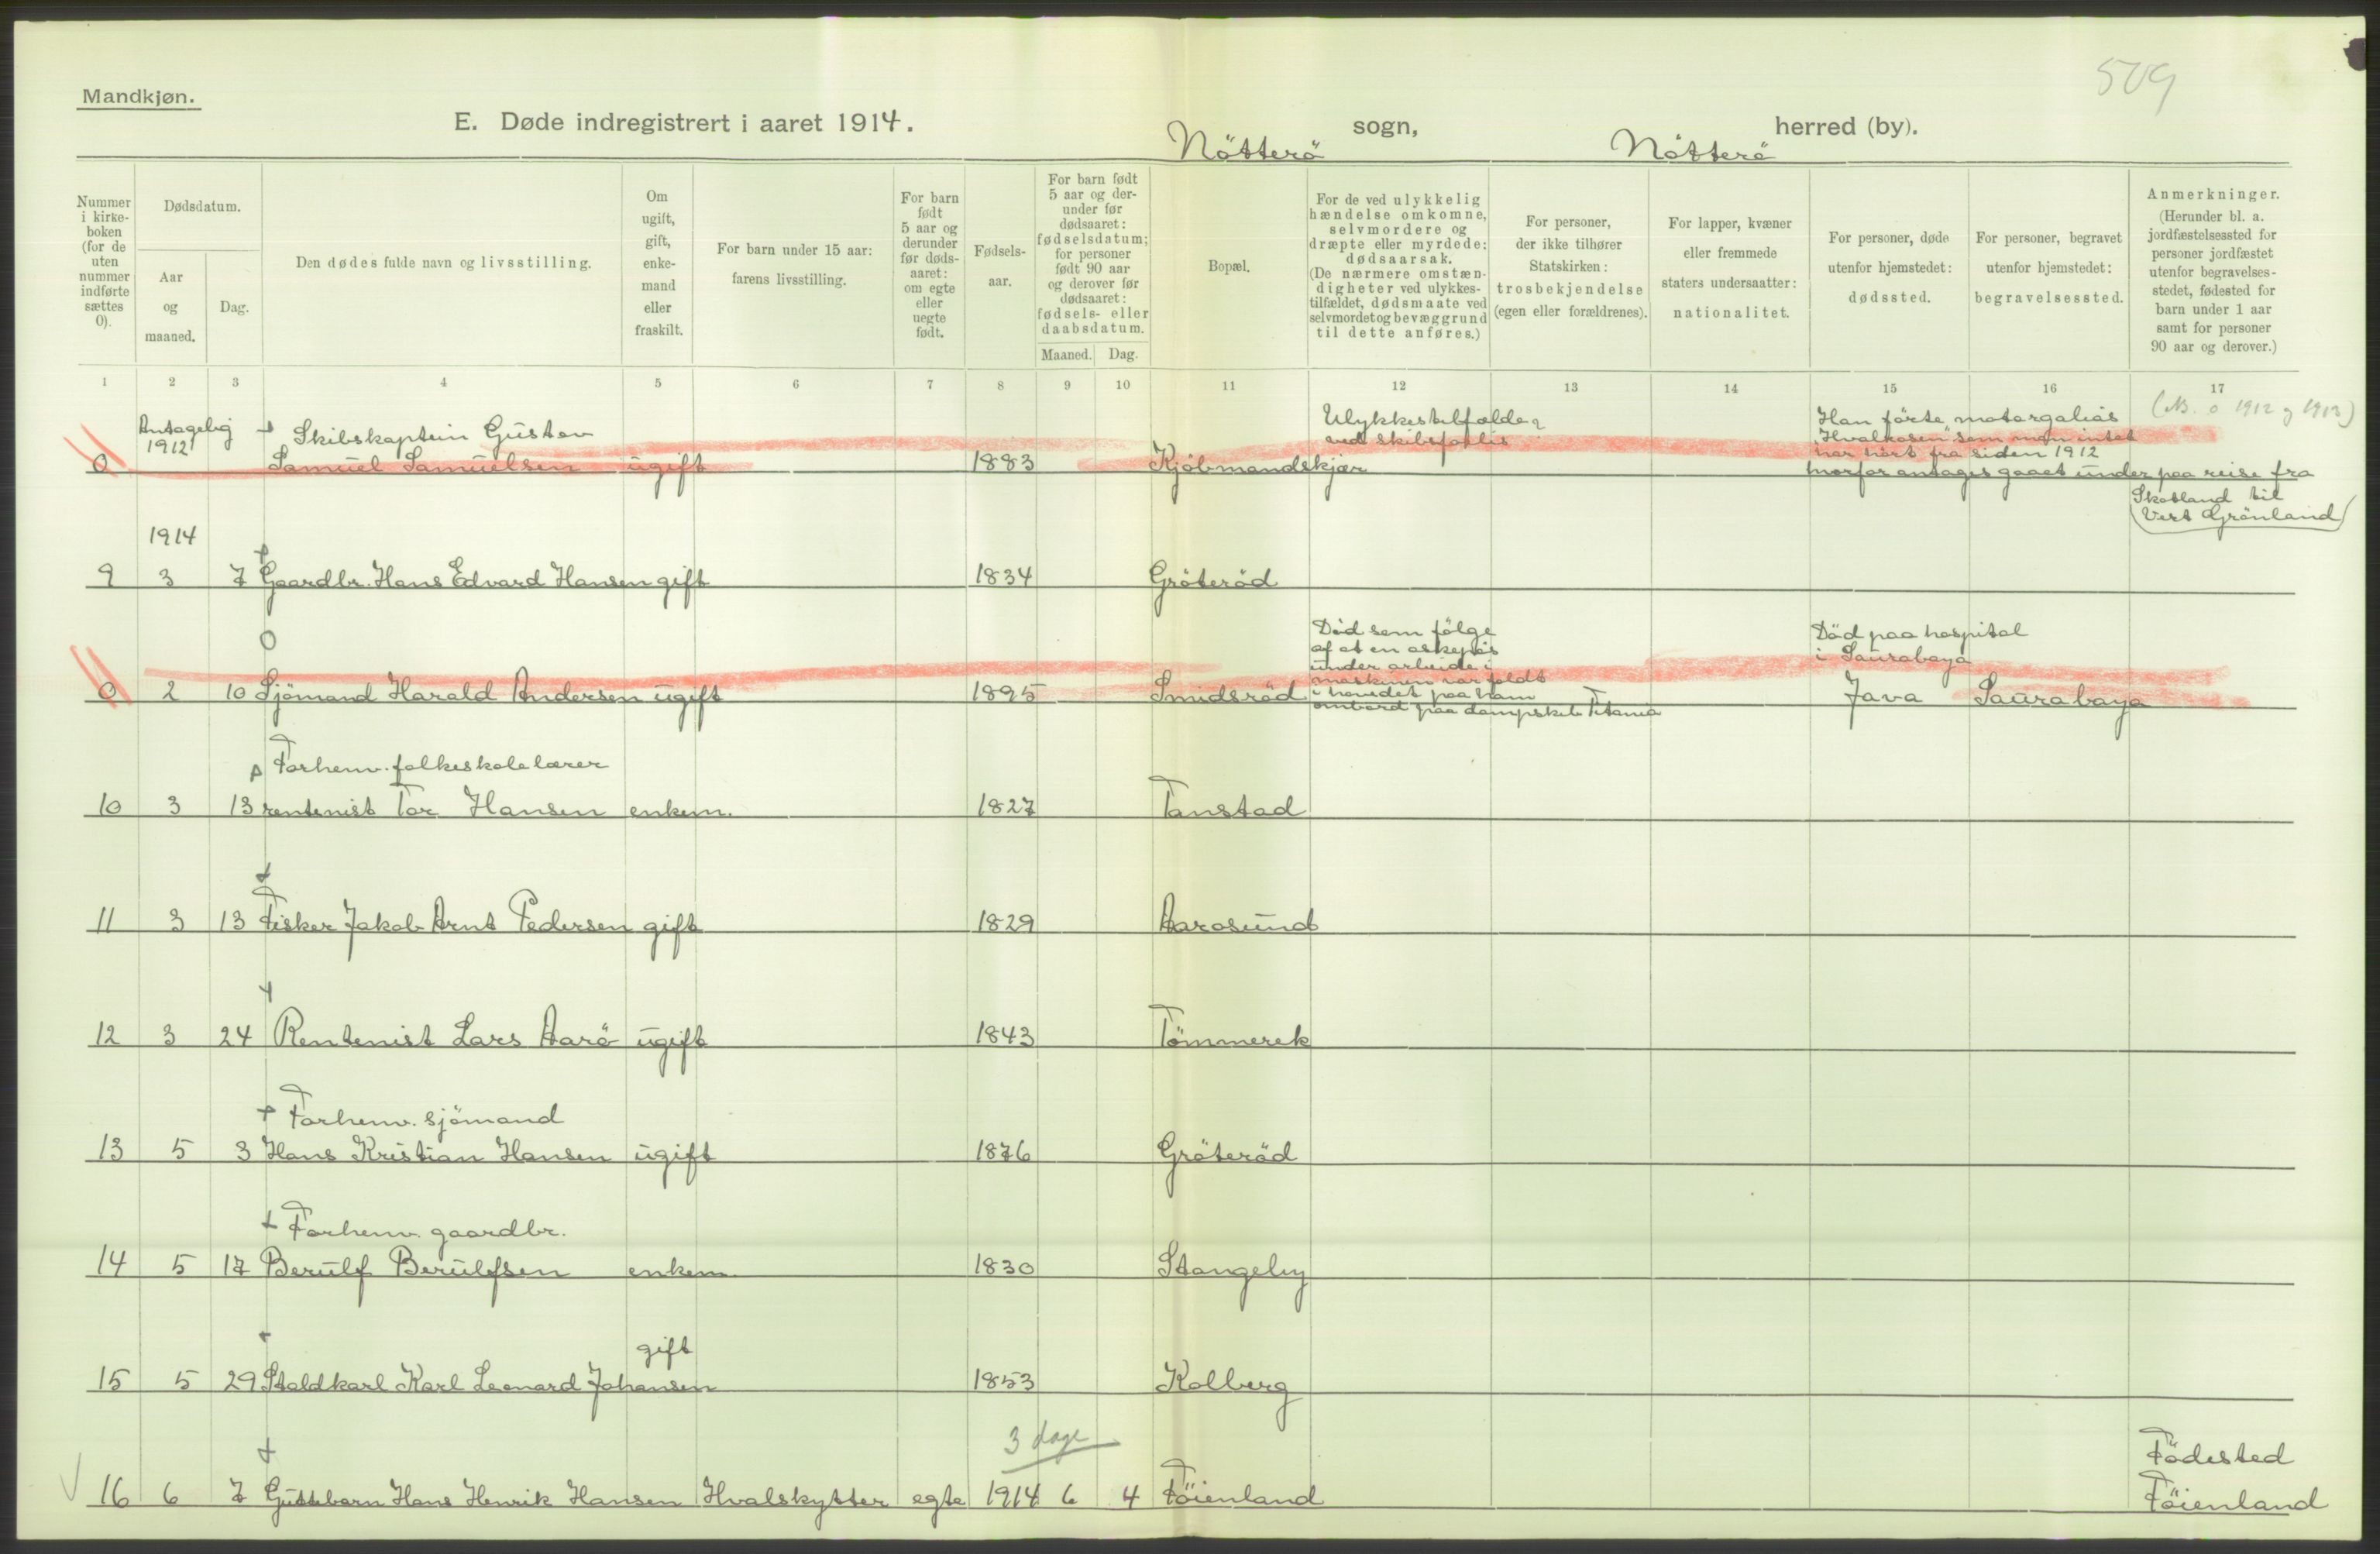 509
Mandkjøn.
E. Døde indregistrert i aaret 1914. Nötterö sogn, Nötterö herred (by).
Nummer i kirke-boken (for de uten nummer indførte sættes 0).
Dødsdatum.
Aar og maaned.
Dag.
Den dødes fulde navn og livsstilling.
Om ugift, gift, enke-mand eller fraskilt.
For barn under 15 aar: farens livsstilling.
For barn født 5 aar og derunder før døds-aaret: om egte eller uegte født.
Fødsels-aar.
For barn født 5 aar og der-under før dødsaaret: fødselsdatum; for personer født 90 aar og derover før dødsaaret: fødsels- eller daabsdatum.
Maaned. Dag.
Bopæl.
For de ved ulykkelig hændelse omkomne, selvmordere og dræpte eller myrdede: dødsaarsak. (De nærmere omstæn-digheter ved ulykkes-tilfældet, dødsmaate ved selvmordet og bevæggrund til dette anføres.)
For personer, der ikke tilhører Statskirken: trosbekjendelse (egen eller forældrenes).
For lapper, kvæner eller fremmede staters undersaatter: nationalitet.
For personer, døde utenfor hjemstedet: dødssted.
For personer, begravet utenfor hjemstedet: begravelsessted.
Anmerkninger. (Herunder bl. a. jordfæstelsessted for personer jordfæstet utenfor begravelses-stedet, fødested for barn under 1 aar samt for personer 90 aar og derover.)
1 2 3 4 5 6 7 8 9 10 11 12 13 14 15 16 17
Antagelig 1912 Skibskaptein Gustav
0 Samuel Samuelsen ugift 1883 Kjöbmandskjær
Ulykkestilfælde
ved skibsforlis
Han förte motorgalias
"Hvalrosen" som man intet
har hört fra siden 1912
hvorfor antages gaaet under paa reise fra
Skotland til
Vest Grönland
1914
9 3 7 Gaardbr. Hans Edvard Hansen gift 1834 Gröteröd
0 2 10 Sjömand Harald Andersen ugift 1895 Smidsröd
Död som fölge
af at en askepös
under arbeide i
maskinen var faldt
i hovedet paa ham
ombord paa dampskib Titania
Död paa hospital
i Saurabaya
Java Saurabaya
Forhenv. folkeskolelærer
10 3 13 rentenist Tor Hansen enkem. 1827 Tanstad
11 3 13 Fisker Jakob Arnt Pedersen gift 1829 Aarosund
12 3 24 Rentenist Lars Aarö ugift 1843 Tömmerek
Forhenv. sjömand
13 5 3 Hans Kristian Hansen ugift 1876 Gröteröd
Forhenv. gaardbr.
14 5 17 Berulf Berulfsen enkem. 1830 Stangeby
gift
15 5 29 Staldkarl Karl Leonard Johansen 1853 Kolberg
3 dage
16 6 7 Guttebarn Hans Henrik Hansen Hvalskytter egte 1914 6 4 Föienland
Födested
Föienland